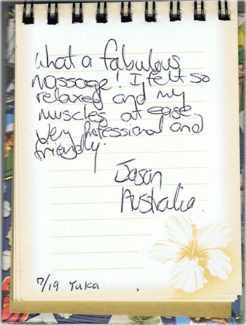 What a fabulous
massage! I felt so
relaxed and my
muscles at ease.
Very professional and
friendly.
Jason
Australia.
7/19 Yuka